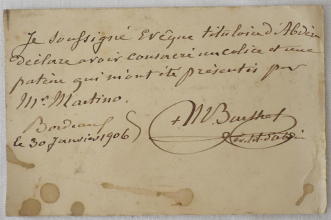 Je soussigné Evêque titulaire d'Abdère
déclare avoir consacré un calice et une
patène qui m'ont été présentés par
Mr Martino.
Bordeaux
le 30 Janvier 1906